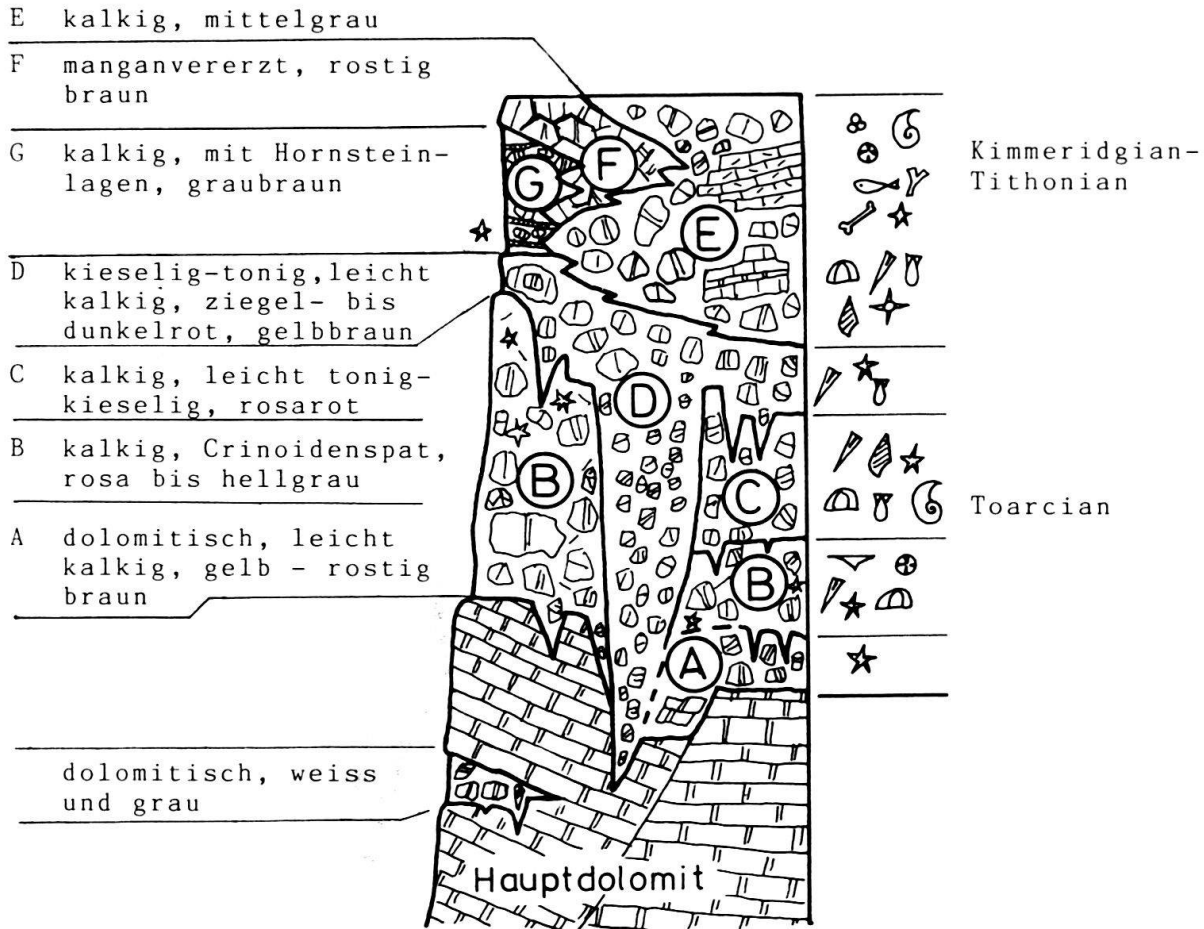 E kalkig, mittelgrau
F manganvererzt, rostig
braun
G kalkig, mit Hornstein-
lagen, graubraun
D kieselig-tonig,leicht
kalkig, ziegel- bis
dunkelrot, gelbbraun
C kalkig, leicht tonig-
kieselig, rosarot
B kalkig, Crinoidenspat,
rosa bis hellgrau
A dolomitisch, leicht
kalkig, gelb - rostig
braun
dolomitisch, weiss
und grau
F
G
E
D
B
C
B
A
Hauptdolomit
Kimmeridgian-
Tithonian
Toarcian